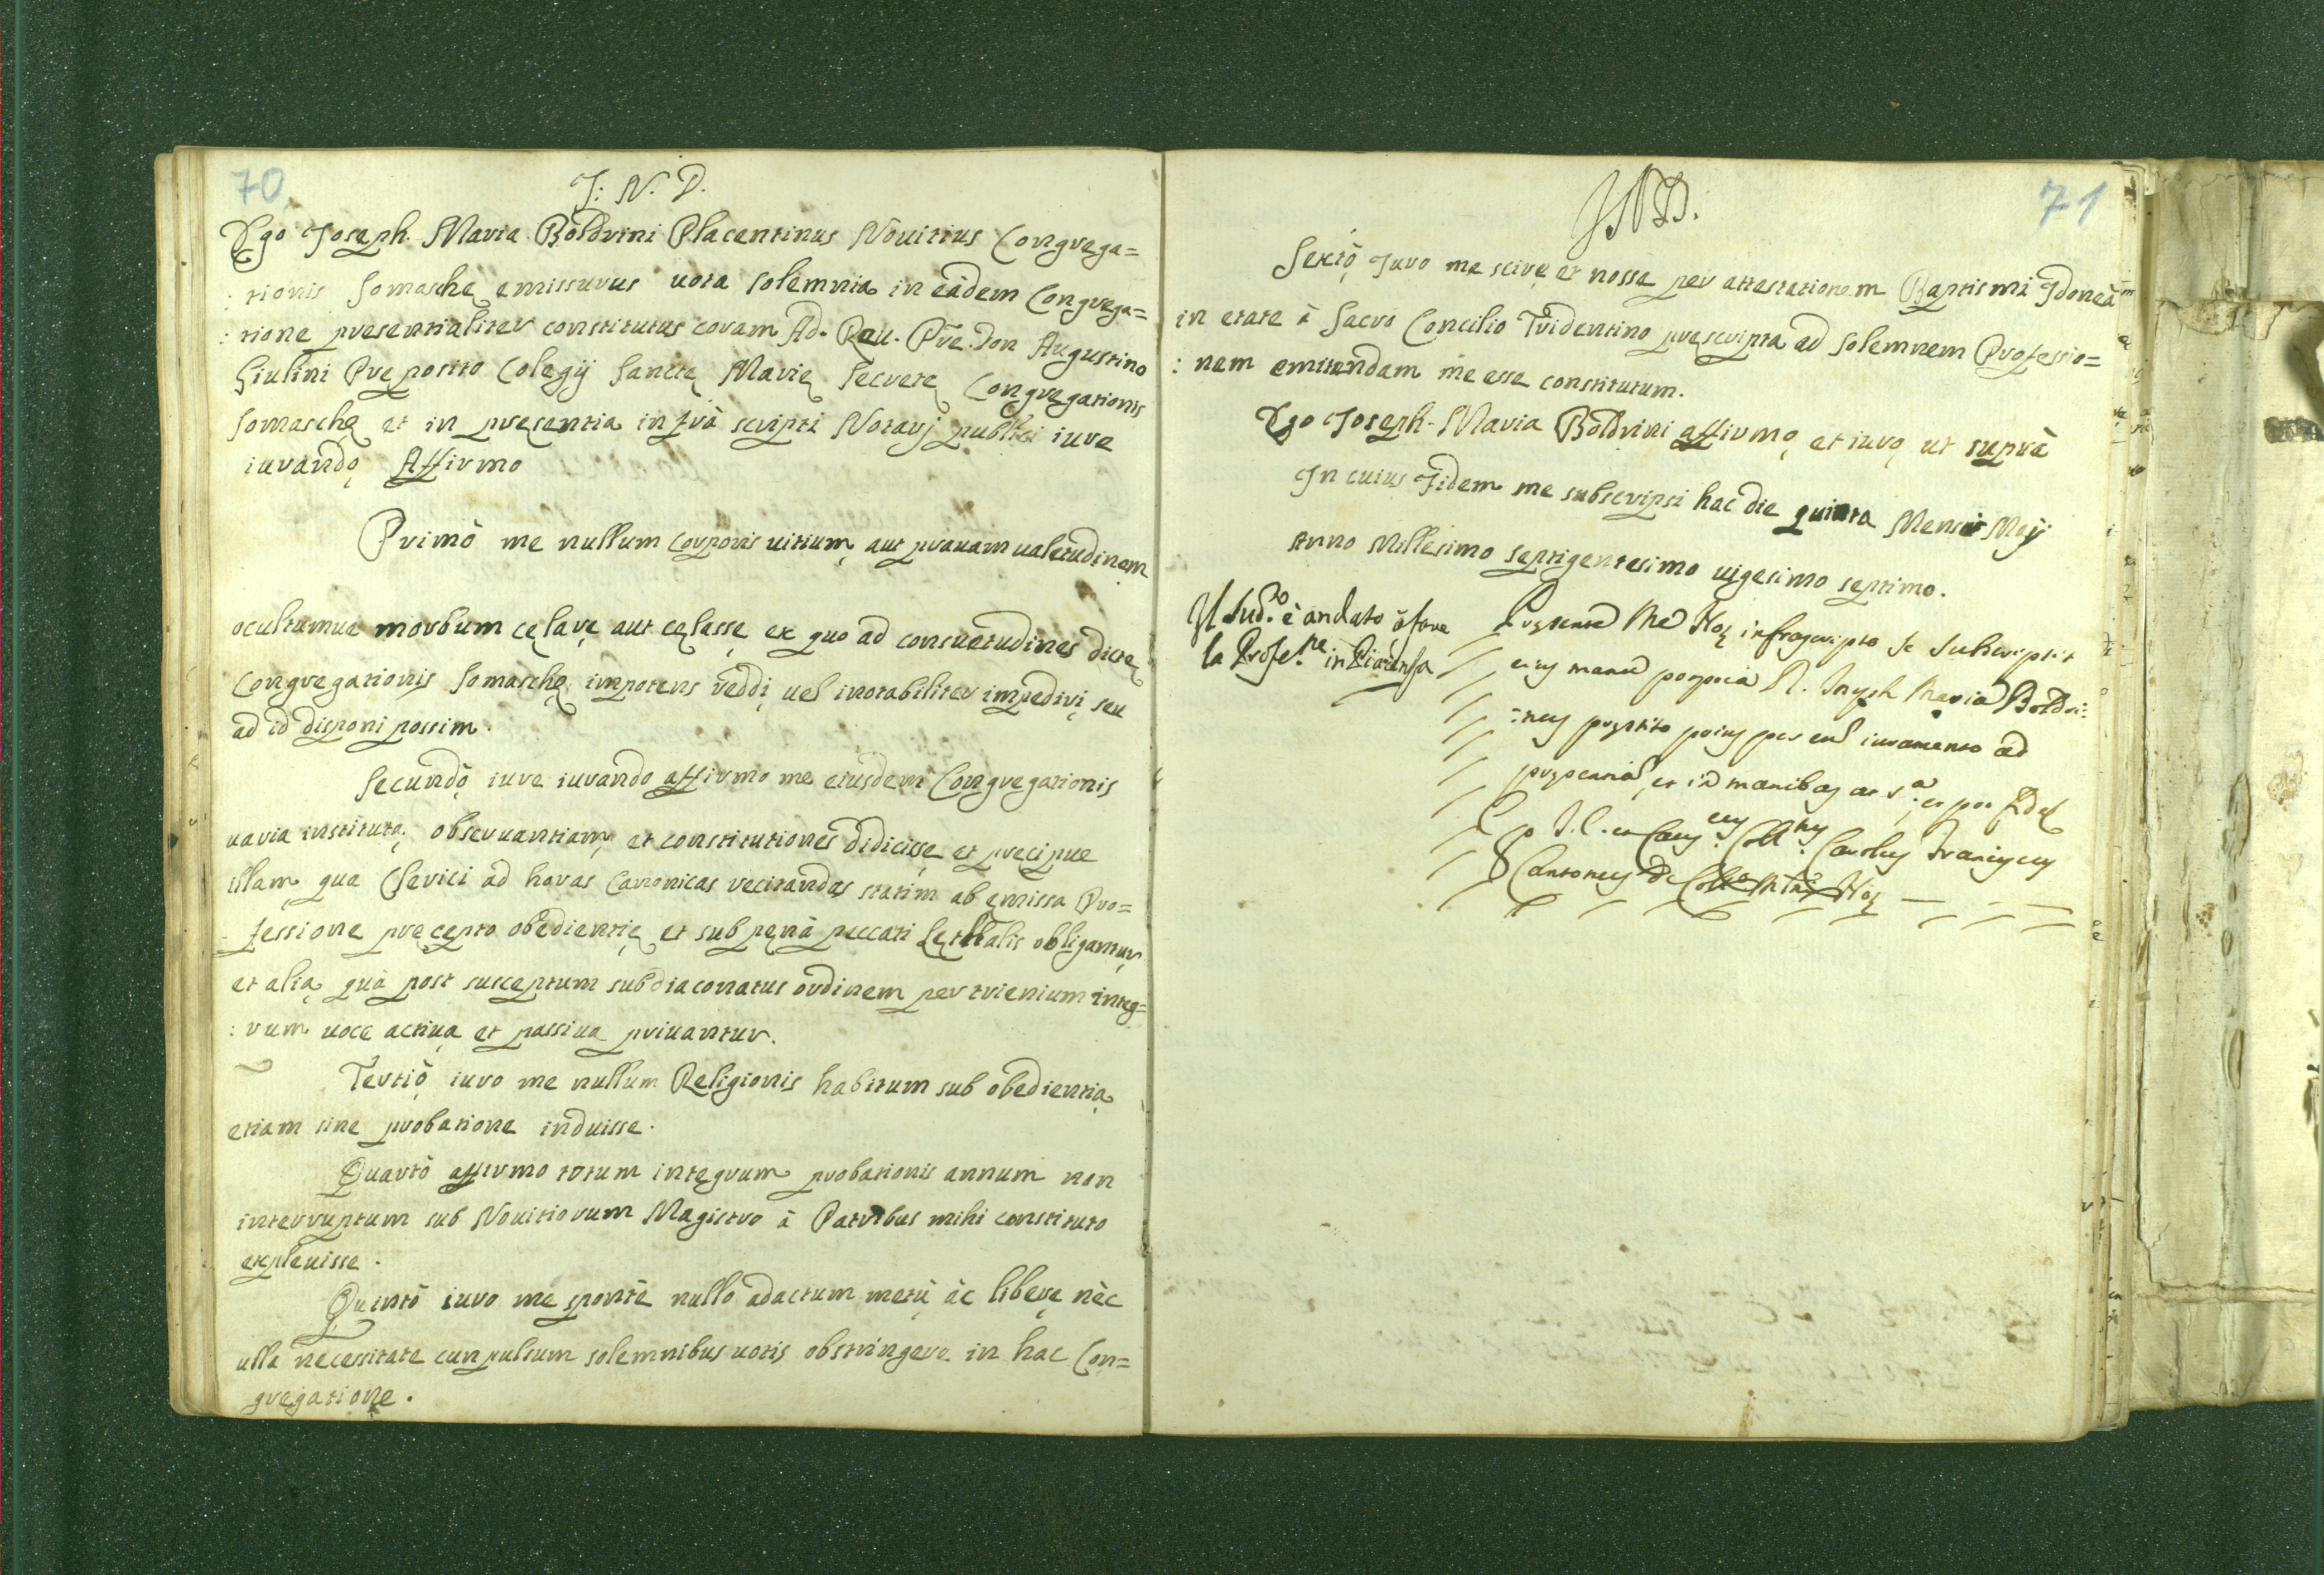 70
J: N. D.
Ego Joseph Maria Boldrini Placentinus Nouitius Congrega=
: tionis Somaschę emissurus uota solemnia in eàdem Congrega=
: tione presentialiter constitutus coram Ad. Reu. Pre. Don Augustino
Giulini Preposito Colegij Sanctę Marię Secretę Congregationis
Somaschę et in presentia infrà scripti Notarj publici iure
iurando Affirmo
Primò me nullum corporis uitium, aut prauam ualetudinem
ocultumue morbum celare aut celasse ex quo ad consuetudines dictę
Congregationis Somaschę impotens reddi, uel inotabiliter impediri, seu
ad id disponi possim.
Secundò iure iurando affirmo me eiusdem Congregationis
uaria instituta, obseruantiam, et constitutiones didicisse et precipue
illam qua Clerici ad horas Canonicas recitandas statim ab emissa Pro=
= fessione pręcepto obedientię et sub penà peccati Lethalis obligantur
et alia, quà post susceptum subdiaconatus ordinem per trienium integ=
: rum uoce actiua et passiua priuantur.
Tertiò iuro me nullum Religionis habitum sub obedientia
etiam sine probatione induisse.
Quartò affirmo totum integrum probationis annum non
interruptum sub Nouitiorum Magistro à Patribus mihi constituto
expleuisse.
Quintò iuro me spontè nullo adactum metù àc liberę nèc
ulla necessitate cunpulsum solemnibus uotis obstringere in hac Con=
gregatione.
71
JND.
Sextò Juro me scire et nosse per attestationem Baptismi Idoneàm
in etate à Sacro Concilio Tridentino prescripta ad solemnem Professio=
: nem emitendam me esse constitutum.
Ego Joseph Maria Boldrini affirmo, et iuro, ut suprà
In cuius Fidem me subscripsi hac die quinta Mensis Maij
Anno Millesimo septigentesimo uigesimo septimo.
Il Sud.to è andato à fare
la Profe.ne in Piacenza
Presente Me Not infrascripto se subscripsit
eius manu propria D. Joseph Maria Boldri:
:nus prestito prius per eum iuramento ad
et in manibus
Ego J. C. Carolus Franciscus
Not